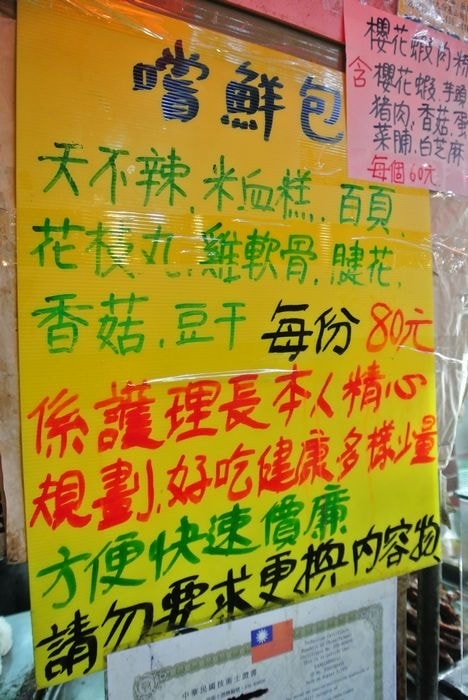 嚐鮮包
天不辣.米血糕.百頁.
花枝丸.雞軟骨.腱花.
香菇.豆干 每份80元
係護理長本人精心
規劃.好吃健康多樣少量
方便快速價廉
請勿要求更換內容物
櫻花蝦肉粽
含櫻花蝦.芋頭
豬肉.香菇.蛋
菜脯.白芝麻
每個60元
中華民國技術士證書